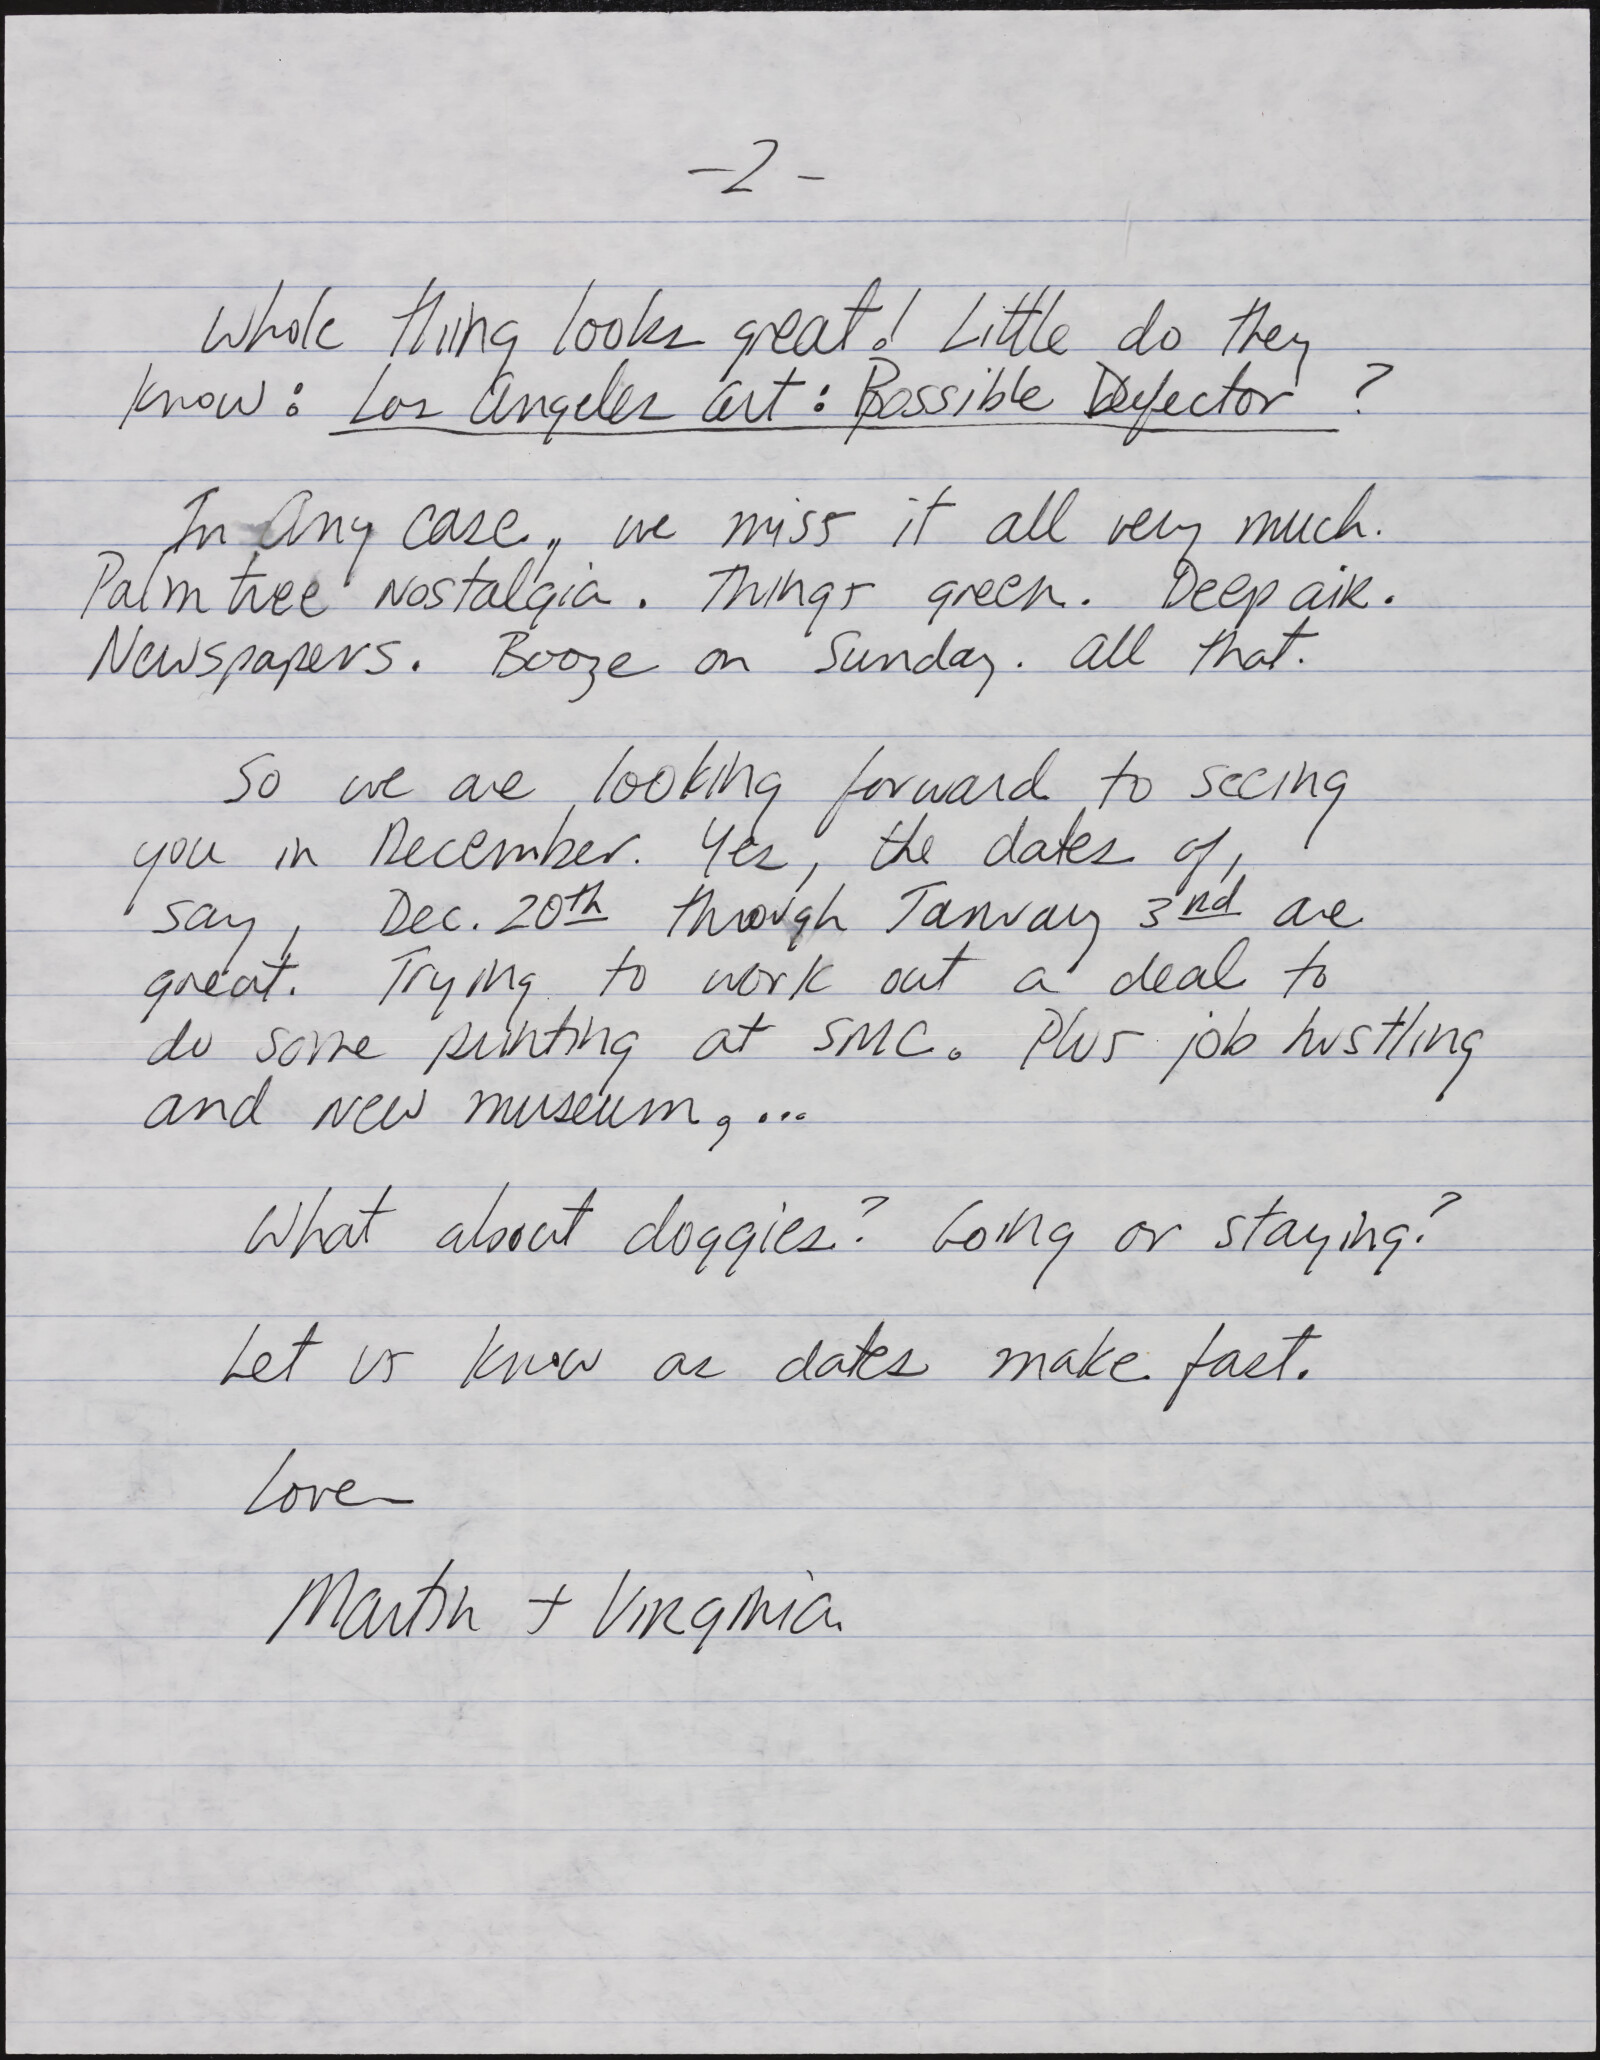 -2-
Whole thing looks great! Little do they
know: Los Angeles Art: Possible Defector?
In any case, we miss it all very much.
Palm tree nostalgia. Things green. Deep air.
Newspapers. Booze on Sunday. All that.
So we are looking forward to seeing
you in December. Yes, the dates of,
say, Dec. 20th through January 3rd are
great. Trying to work out a deal to
do some printing at SMC. Plus job hustling
and new museum, ...
What about doggies? Going or staying?
Let us know as dates make fast.
Love
Martin + Virginia